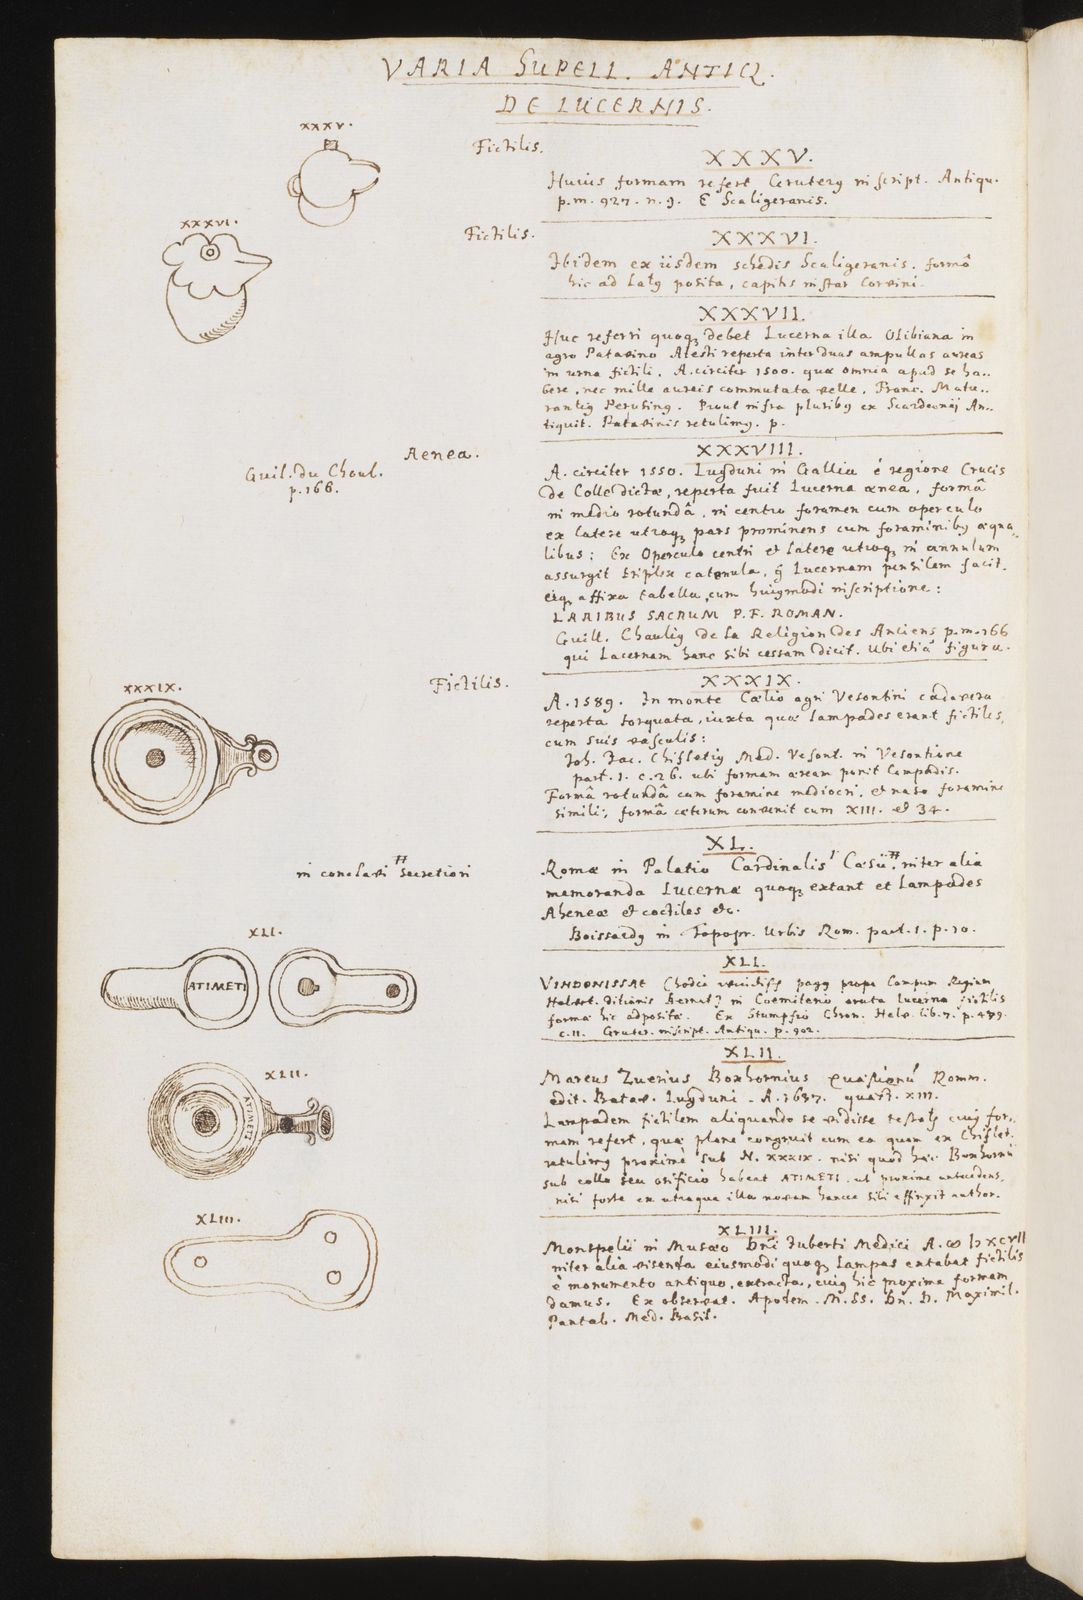 VARIA SUPELL. ANTIQ.
DE LUCERNIS.
XXXV.
Fictilis.
XXXV.
Huius formam refert Gruterg inscript. Antiqu.
p.m. 927. n. 9. E Scaligeranis.
XXXVI.
Fictilis.
XXXVI.
Ibidem ex iisdem schedis Scaligeranis. formâ
hic ad latg posita, capitis instar Corvini.
XXXVII.
Huc referri quoq debet Lucerna illa Olibiana in
agro Patavino Atesti reperta inter duas ampullas aureas
in urna fictili. A. circiter 1500. quæ omnia apud se ha..
bere, nec mille aureis commutata velle, Franc. Matu..
rantig Perusing. Prout infra pluribg ex Scardeonij An..
tiquit. Patavinis retulimg. p.
Aenea.
Guil. du Choul.
p. 166.
XXXVIII.
A. circiter 1550. Lugduni in Gallia è regione Crucis
de Colle dictæ, reperta fuit Lucerna ænea, formâ
in medio rotundâ, in centro foramen cum operculo
ex latere utroq pars prominens cum foraminibg æqua..
libus: Ex Operculo centri et latere utroq in annulum
assurgit triplex catenula, q Lucernam pensilem facit.
eiq affixa tabella, cum huigmodi inscriptione:
LARIBUS SACRUM P. F. ROMAN.
Guill. Chaulig de la Religion des Anciens p.m. 166
qui Lucernam hanc sibi cessam dicit. Ubi etiã figura.
XXXIX.
Fictilis.
XXXIX.
A. 1589. In monte Cælio agri Vesontini cadavera
reperta torquata, iuxta quæ lampades erant fictiles,
cum suis vasculis:
Joh. Jac. Chifletig Med. Vesont. in Vesontione
part. 1. c. 26. ubi formam æream ponit Lampadis.
Formâ rotundâ cum foramine mediocri, et naso foramine
simili; formâ cæterum convenit cum XIII. et 34.
XL.
Romæ in Palatio Cardinalis Cæsii # inter alia
memoranda Lucernæ quoq extant et Lampades
Aheneæ et coctiles etc.
Boissardg in Topogr. Urbis Rom. part. 1. p. 10.
in conclavi # secretiori
XLI.
ATIMETI
XLI.
VINDONISSAE (hodie pagg prope Campum Regium
Helvet. ditionis Bernat.) in Coemiterio eruta lucerna fictilis
forma hic adposita. Ex Stumpfio Chron. Helv. lib. 7. p. 479.
c. 11. Gruter. inscript. Antiqu. p. 902.
XLII.
ATIMETI
XLII.
Marcus Zuerius Boxhornius Quæstionũ Romm.
edit. Batav. Lugduni. A. 1637. quæst. XIII.
Lampadem fictilem aliquando se vidisse testatg cuig for..
mam refert, quæ plane congruit cum ea quam ex Chiflet.
retulimg proximè sub N. XXXIX. nisi quod hæc Boxhornii
sub collo seu orificio habeat ATIMETI. ut proxime antecedens,
nisi forte ex utraque illa novam hancce sibi effinxit author.
XLIII.
XLIII.
Monspelii in Musæo Dni Juberti Medici A.
inter alia visenda eiusmodi quoq lampas extabat fictilis
è monumento antiquo, extracta, cuig hic proxime formam
damus. Ex observat. Apodem. M.SS. Dn. D. Maximil.
Pantal. Med. Basil.